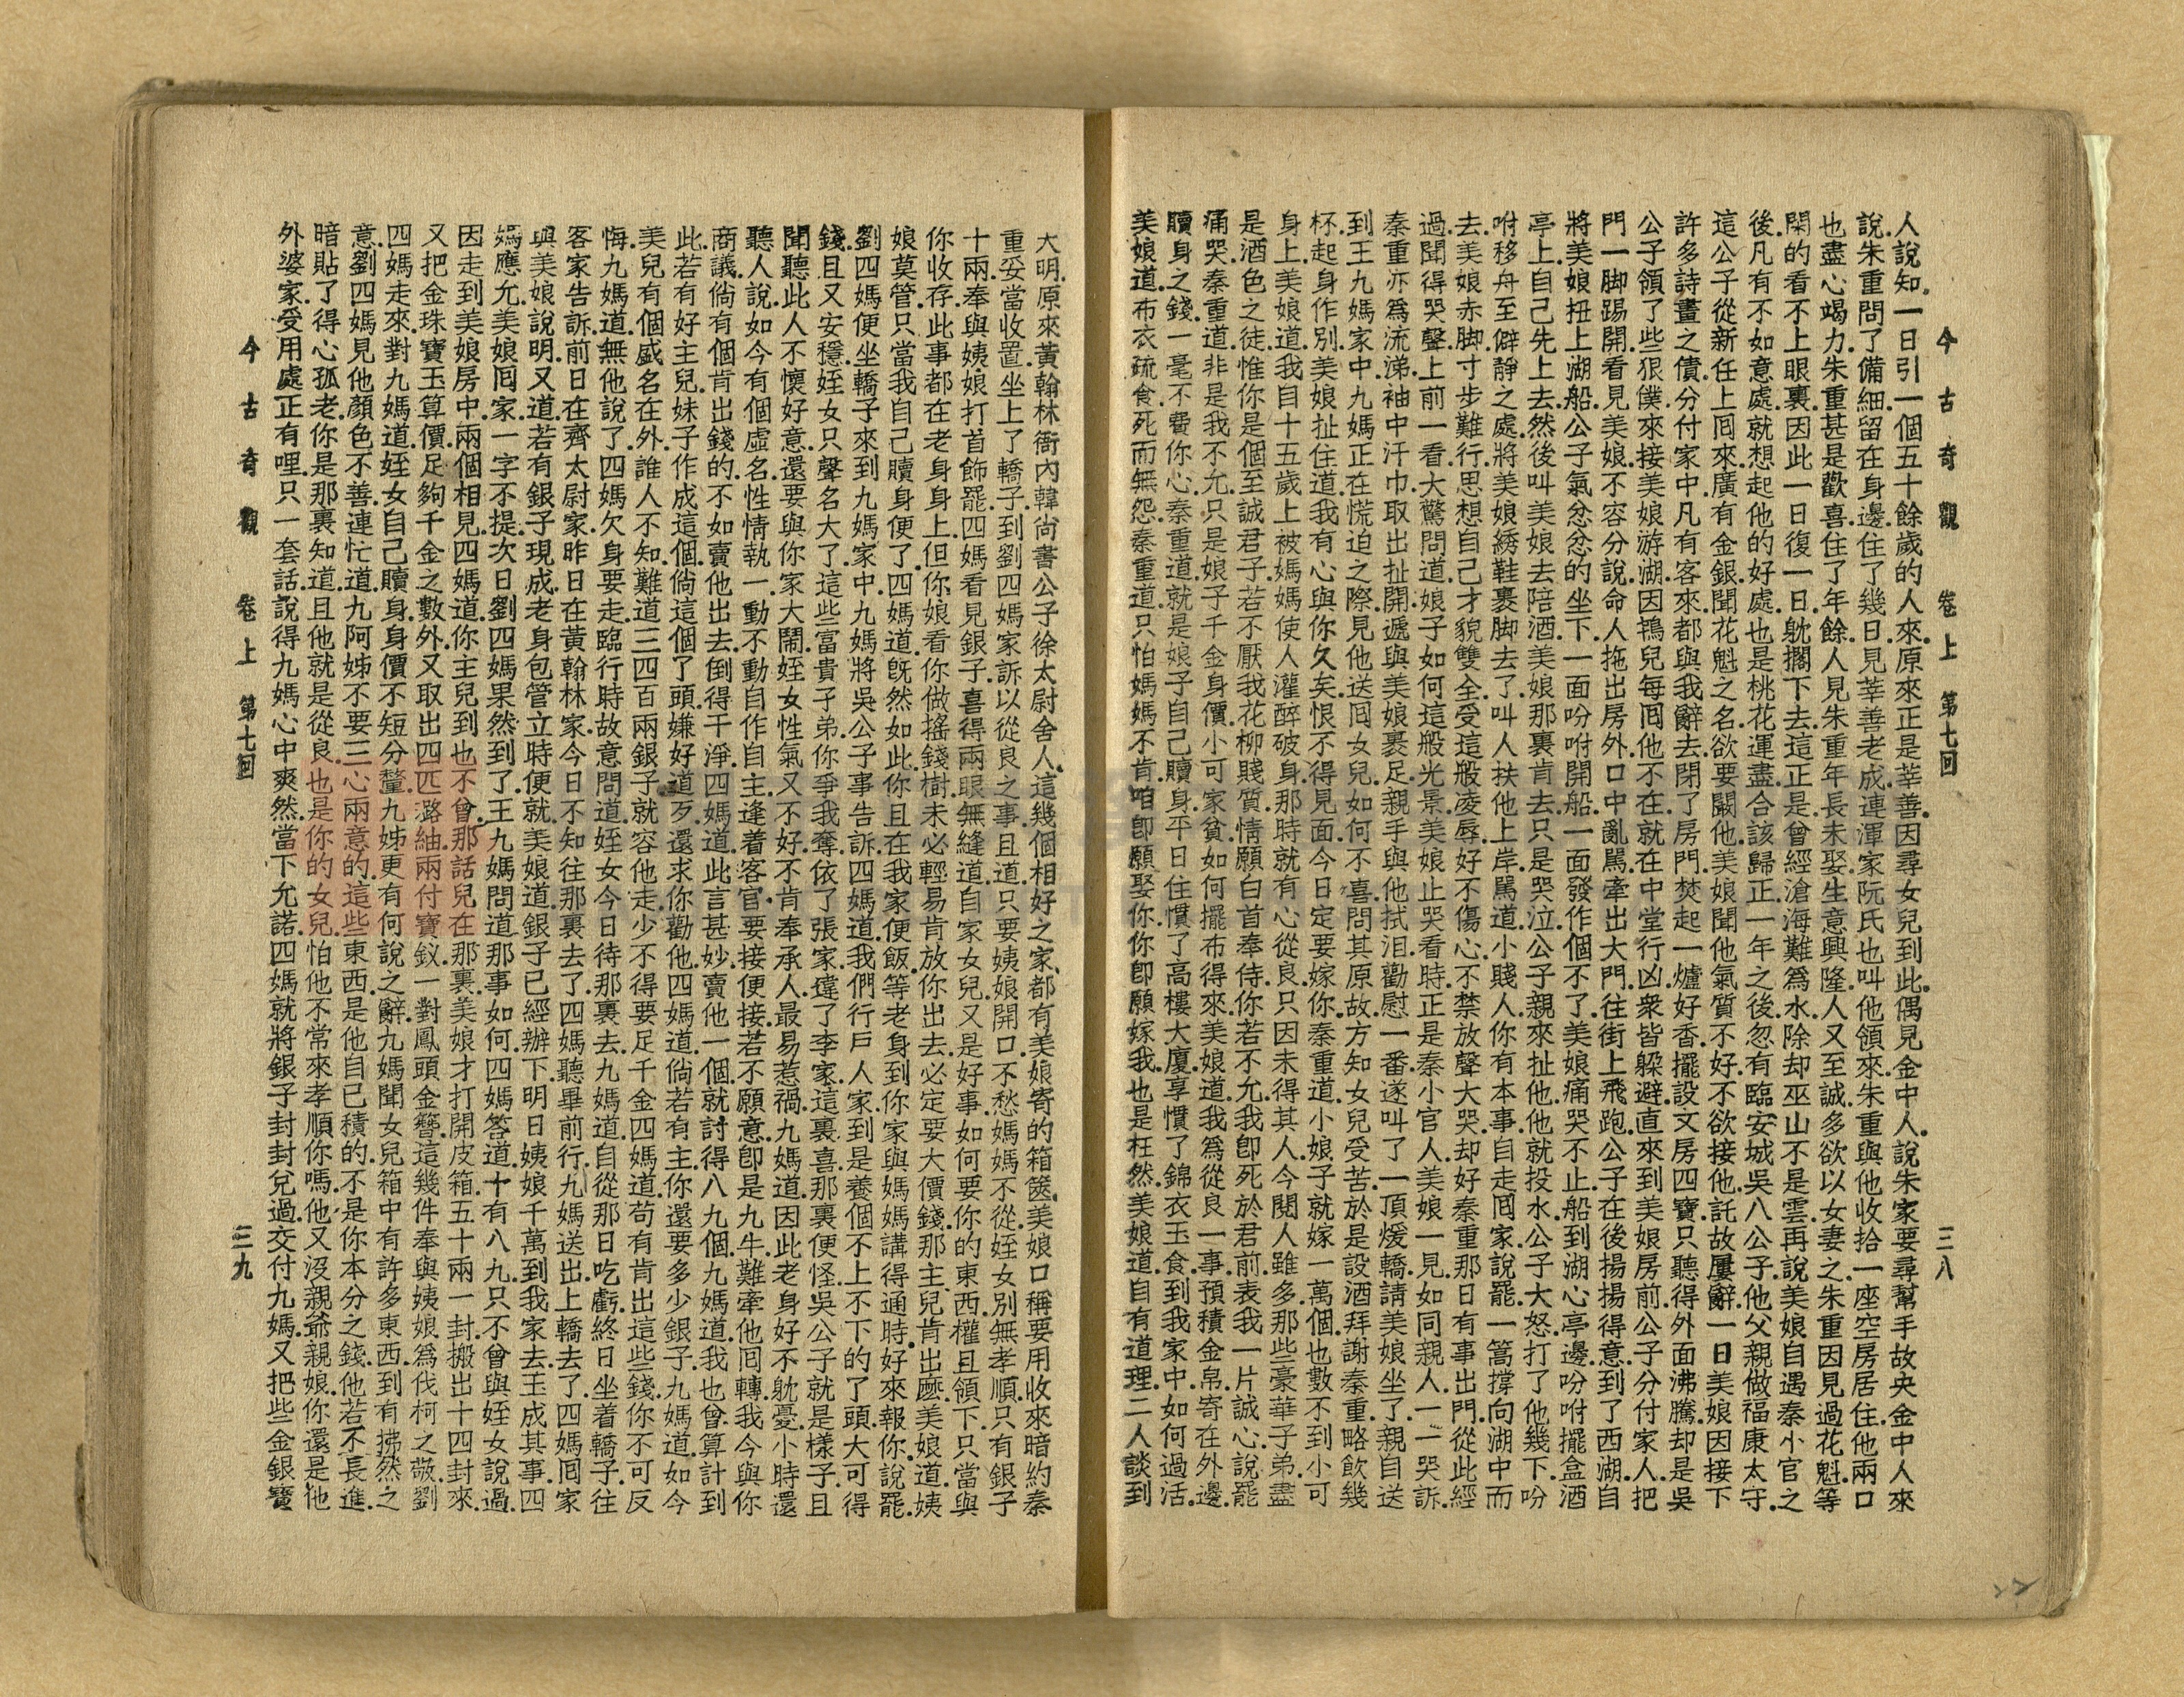 今古奇觀 卷上 第七回 三八
人說知．一日引一個五十餘歲的人來．原來正是莘善．因尋女兒到此．偶見金中人．說朱家要尋幫手故央金中人來
說．朱重問了備細．留在身邊．住了幾日．見莘善老成．連渾家阮氏也叫他領來．朱重與他收拾一座空房居住．他兩口
也盡心竭力．朱重甚是歡喜．住了年餘．人見朱重年長未娶．生意興隆．人又至誠．多欲以女妻之．朱重因見過花魁．等
閑的看不上眼裏．因此一日復一日．躭擱下去．這正是曾經滄海難爲水．除却巫山不是雲．再說美娘自遇秦小官之
後．凡有不如意處．就想起他的好處．也是桃花運盡．合該歸正．一年之後．忽有臨安城．吳八公子．他父親做福康太守．
這公子從新任上囘來．廣有金銀．聞花魁之名．欲要闞他．美娘聞他氣質不好．不欲接他．託故屢辭．一日美娘因接下
許多詩畫之債．分付家中．凡有客來．都與我辭去．閉了房門．焚起一爐好香．擺設文房四寶．只聽得外面沸騰．却是吳
公子領了些狠僕．來接美娘游湖．因鴇兒每囘他不在．就在中堂行凶．衆皆躲避．直來到美娘房前．公子分付家人．把
門一脚踢開．看見美娘．不容分說．命人拖出房外．口中亂罵．牽出大門．往街上飛跑．公子在後．揚揚得意．到了西湖．自
將美娘扭上湖船．公子氣忿忿的坐下．一面吩咐開船．一面發作個不了．美娘痛哭不止．船到湖心亭邊．吩咐擺盒酒
亭上．自己先上去．然後叫美娘去陪酒．美娘那裏肯去．只是哭泣．公子親來扯他．他就投水．公子大怒．打了他幾下．吩
咐移舟至僻靜之處．將美娘綉鞋裹脚去了．叫人扶他上岸．罵道．小賤人．你有本事．自走囘家．說罷．一篙撐向湖中而
去．美娘赤脚．寸步難行．思想自己才貌雙全．受這般凌辱．好不傷心．不禁放聲大哭．却好秦重那日有事出門．從此經
過．聞得哭聲．上前一看．大驚問道．娘子如何這般光景．美娘止哭看時．正是秦小官人．美娘一見．如同親人．一一哭訴．
秦重亦爲流涕．袖中汗巾．取出扯開．遞與美娘裹足．親手與他拭泪．勸慰一番．遂叫了一頂煖轎．請美娘坐了．親自送
到王九媽家中．九媽正在慌迫之際．見他送囘女兒．如何不喜．問其原故．方知女兒受苦．於是設酒拜謝秦重．略飲幾
杯．起身作別．美娘扯住道．我有心與你久矣．恨不得見面．今日定要嫁你．秦重道．小娘子就嫁一萬個．也數不到小可
身上．美娘道．我自十五歲上．被媽媽使人灌醉破身．那時就有心從良．只因未得其人．今閱人雖多．那些豪華子弟．盡
是酒色之徒．惟你是個至誠君子．若不厭我花柳賤質．情願白首奉侍．你若不允．我卽死於君前．表我一片誠心．說罷
痛哭．秦重道．非是我不允．只是娘子千金身價．小可家貧．如何擺布得來．美娘道．我爲從良一事．預積金帛．寄在外邊．
贖身之錢．一毫不費你心．秦重道．就是娘子自己贖身．平日住慣了高樓大廈．享慣了錦衣玉食．到我家中．如何過活．
美娘道．布衣疏食．死而無怨．秦重道．只怕媽媽不肯．咱卽願娶你．你卽願嫁我．也是枉然．美娘道．自有道理．二人談到
大明．原來黃翰林衙內．韓尙書公子．徐太尉舍人．這幾個相好之家．都有美娘寄的箱篋．美娘口稱要用．收來暗約秦
重妥當收置．坐上了轎子．到劉四媽家．訴以從良之事．且道．只要姨娘開口．不愁媽媽不從．姪女別無孝順．只有銀子
十兩．奉與姨娘打首飾罷．四媽看見銀子．喜得兩眼無縫．道．自家女兒．又是好事．如何要你的東西．權且領下．只當與
你收存．此事都在老身身上．但你娘看你做搖錢樹．未必輕易肯放你出去．必定要大價錢．那主兒肯出麽．美娘道．姨
娘莫管．只當我自己贖身便了．四媽道．旣然如此．你且在我家便飯．等老身到你家．與媽媽講得通時．好來報你．說罷．
劉四媽便坐轎子．來到九媽家中．九媽將吳公子事告訴．四媽道．我們行戶人家．到是養個不上不下的了頭．大可得
錢．且又安穩．姪女只聲名大了．這些富貴子弟．你爭我奪．依了張家．違了李家．這裏喜．那裏便怪．吳公子就是樣子．且
聞聽此人不懷好意．還要與你家大鬧．姪女性氣又不好．不肯奉承人．最易惹禍．九媽道．因此老身好不躭憂．小時還
聽人說．如今有個虛名．性情執一．動不動自作自主．逢着客官．要接便接．若不願意．卽是九牛難牽他囘轉．我今與你
商議．倘有個肯出錢的．不如賣他出去．倒得干淨．四媽道．此言甚妙．賣他一個．就討得八九個．九媽道．我也曾算計到
此．若有好主兒．妹子作成這個．倘這個了頭嫌好道歹．還求你勸他．四媽道．倘若有主．你還要多少銀子．九媽道．如今
美兒有個盛名在外．誰人不知．難道三四百兩銀子．就容他走．少不得要足千金．四媽道．苟有肯出這些錢．你不可反
悔．九媽道．無他說了．四媽欠身要走．臨行時．故意問道．姪女今日待那裏去．九媽道．自從那日吃虧．終日坐着轎子．往
客家告訴．前日在齊太尉家．昨日在黃翰林家．今日不知往那裏去了．四媽聽畢前行．九媽送出．上轎去了．四媽囘家
與美娘說明．又道．若有銀子現成．老身包管立時便就．美娘道．銀子已經辦下．明日姨娘千萬到我家去．玉成其事．四
媽應允．美娘囘家．一字不提．次日劉四媽果然到了．王九媽問道．那事如何．四媽答道．十有八九．只不曾與姪女說過．
因走到美娘房中．兩個相見．四媽道．你主兒到也不曾．那話兒在那裏．美娘才打開皮箱．五十兩一封．搬出十四封來．
又把金珠寶玉算價．足夠千金之數外．又取出四匹潞紬．兩付寶釵．一對鳳頭金簪．這幾件奉與姨娘爲伐柯之敬．劉
四媽走來．對九媽道．姪女自己贖身．身價不短分釐．九姊更有何說之辭．九媽聞女兒箱中有許多東西．到有拂然之
意．劉四媽見他顏色不善．連忙道．九阿姊不要三心兩意的．這些東西．是他自已積的．不是你本分之錢．他若不長進．
暗貼了得心孤老．你是那裏知道．且他就是從良．也是你的女兒．怕他不常來孝順你嗎．他又沒親爺親娘．你還是他
外婆家．受用處正有哩．只一套話．說得九媽心中爽然．當下允諾．四媽就將銀子．封封兌過．交付九媽．又把些金銀寶
今古奇觀 卷上 第七回 三九